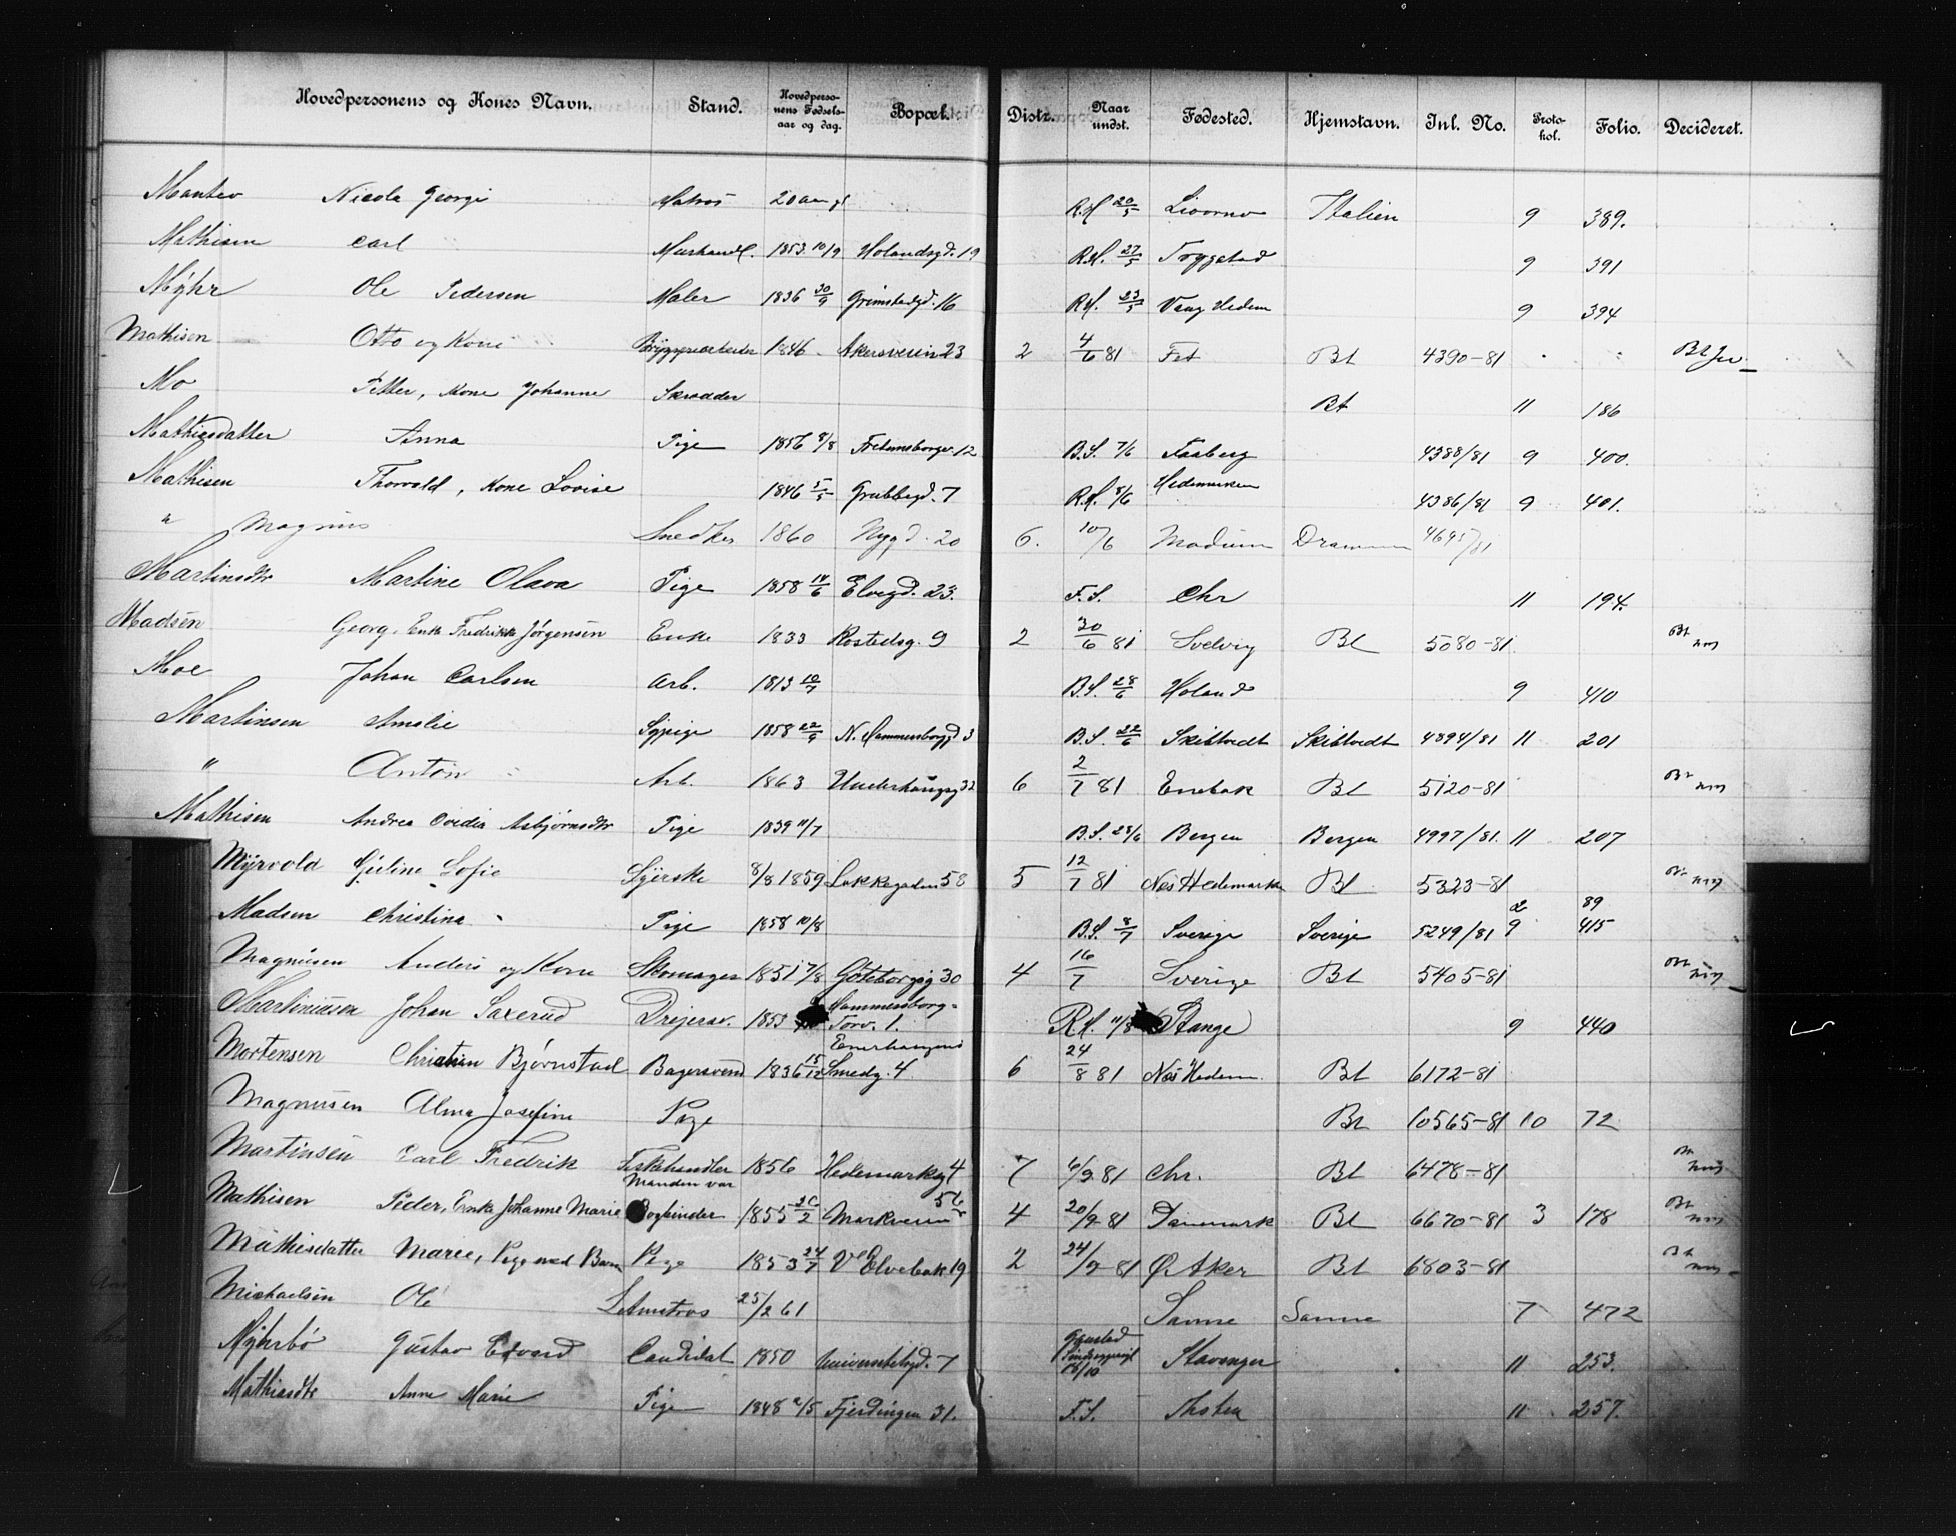 Hovedpersonens og Kones Navn. Stand. Hovedpersonens Fødselsaar og dag. Bopæl. Distr. Naar undst. Fødested. Hjemstavn. Inl. No. Protokol. Folio. Decideret.
Nicola Georgi Matros 20 aar gl R.H. 20/5 Livorno Italien 9 389.
Mathisen Carl 1853 10/9 Holandsgd. 19 R.H. 27/5 Trygstad 9 391
Myhr Ole Pedersen Maler 1836 30/9 Grimstadgd. 16 R.H. 23/5 Vang Hedem 9 394
Mathisen Otto og Kone Bryggearbeider 1846 Akersveien 23 2 4/6 81 Fet Bt 4390-81
Mo Petter, Kone Johanne Skrædder Bt 11 186
Mathisdatter Anna Pige 1856 8/8 12 B.S. 7/6 Faaberg 4388/81 9 400.
Mathisen Thorvald, Kone Lovise 1846 5/5 Grubbegd. 7 R.H. 8/6 Hedemarken 4386/81 9 401.
" Magnus Snedker 1860 Nygd. 20 6. 10/6 Modum Drammen 4695/81
Martinsdtr Martine Olava Pige 1858 14/6 Elvegd. 23. F.S. Chr 11 194.
Madsen Georg, Enke Fredrikke Jørgensen Enke 1833 Rostedsg. 9 2 30/6 81 Svelvig Bt 5080-81 Bt
Moe Johan Carlsen Arb. 1813 10/7 B.S. 28/6 Høland 9 410
Martinsen Amalie Sypige 1858 22/9 N. Hammersborggd 3 B.S. 22/6 Skibtvedt Skibtvedt 4894/81 11 201
" Anton Arb. 1863 32 6 2/7 81 Enebak Bt 5120-81 Bt
Mathisen Andrea Ovidia Asbjørnsdtr Pige 1839 11/7 B.S. 28/6 Bergen Bergen 4997/81. 11 207
Myrvold Gusline Sofie Syerske 8/8 1859 Lakkegaden 58 5 12/7 81 Nes Hedemarken Bt 5323-81 Bt
2 89
Madsen Christina Pige 1858 10/8 B.S. 8/7 Sverige Sverige 5249/81 9 415
Magnusen Anders og Kone Skomager 1851 7/8 Gøteborgsg 30 4 16/7 Sverige Bt 5405-81 Bt
Martiniusen Johan Saxerud Drejersv. 1853 Hammersborg-
Torv. 1. R.H. 11/8 Stange 9 440
Mortensen Christian Bjørnstad Bagersvend 1836 15/12 Enerhaugens
Smedg. 4 6 24/8 81 Nes Hedem. Bt 6172-81
Magnusen Alma Josefine Pige Bt 10565-81 10 72
Martinsen Carl Fredrik Fiskhandler 1856 Hedemarksg 4 7 6/9 81 Chr. Bt 6478-81 Bt
Manden var
Mathisen Peder, Enke Johanne Marie Bogbinder 1855 26/2 Markveien 56 4 20/9-81 Danmark Bt 6670-81 3 178 Bt
Mathisdatter Marie, Pige med Barn Pige 1853 24/7 Ved Elvebak 19 2 24/9-81 Ø. Aker Bt 6803-81 Bt
Michaelsen Ole 25/2 61 Sanne Sanne 7 472
Myhrbø Gustav Edvard Candidat 1850 Universitetsgd. 7 Gaustad
Sindssygeasyl
18/10 Stavanger 11 253.
Mathiasdtr Anne Marie Pige 1848 2/5 Fjerdingen 31. F.S. Thoten 11 257.